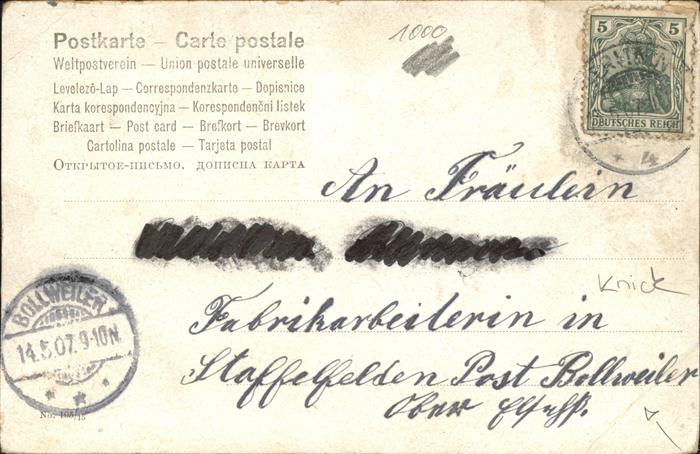 Postkarte – Carte postale
Weltpostverein – Union postale universelle
Levelező-Lap – Correspondenzkarte – Dopisnice
Karta korespondencyjna – Korespondenční listek
Briefkaart – Post card – Brefkort – Brevkort
Cartolina postale – Tarjeta postal
Открытое-письмо. дописна карта
1000
5 5
DEUTSCHES REICH
4
An Fräulein
Knick
Fabrikarbeiterin in
Staffelfelden Post Bollweiler
Ober Elsaß.
BOLLWEILER
14.5.07. 9-10N.